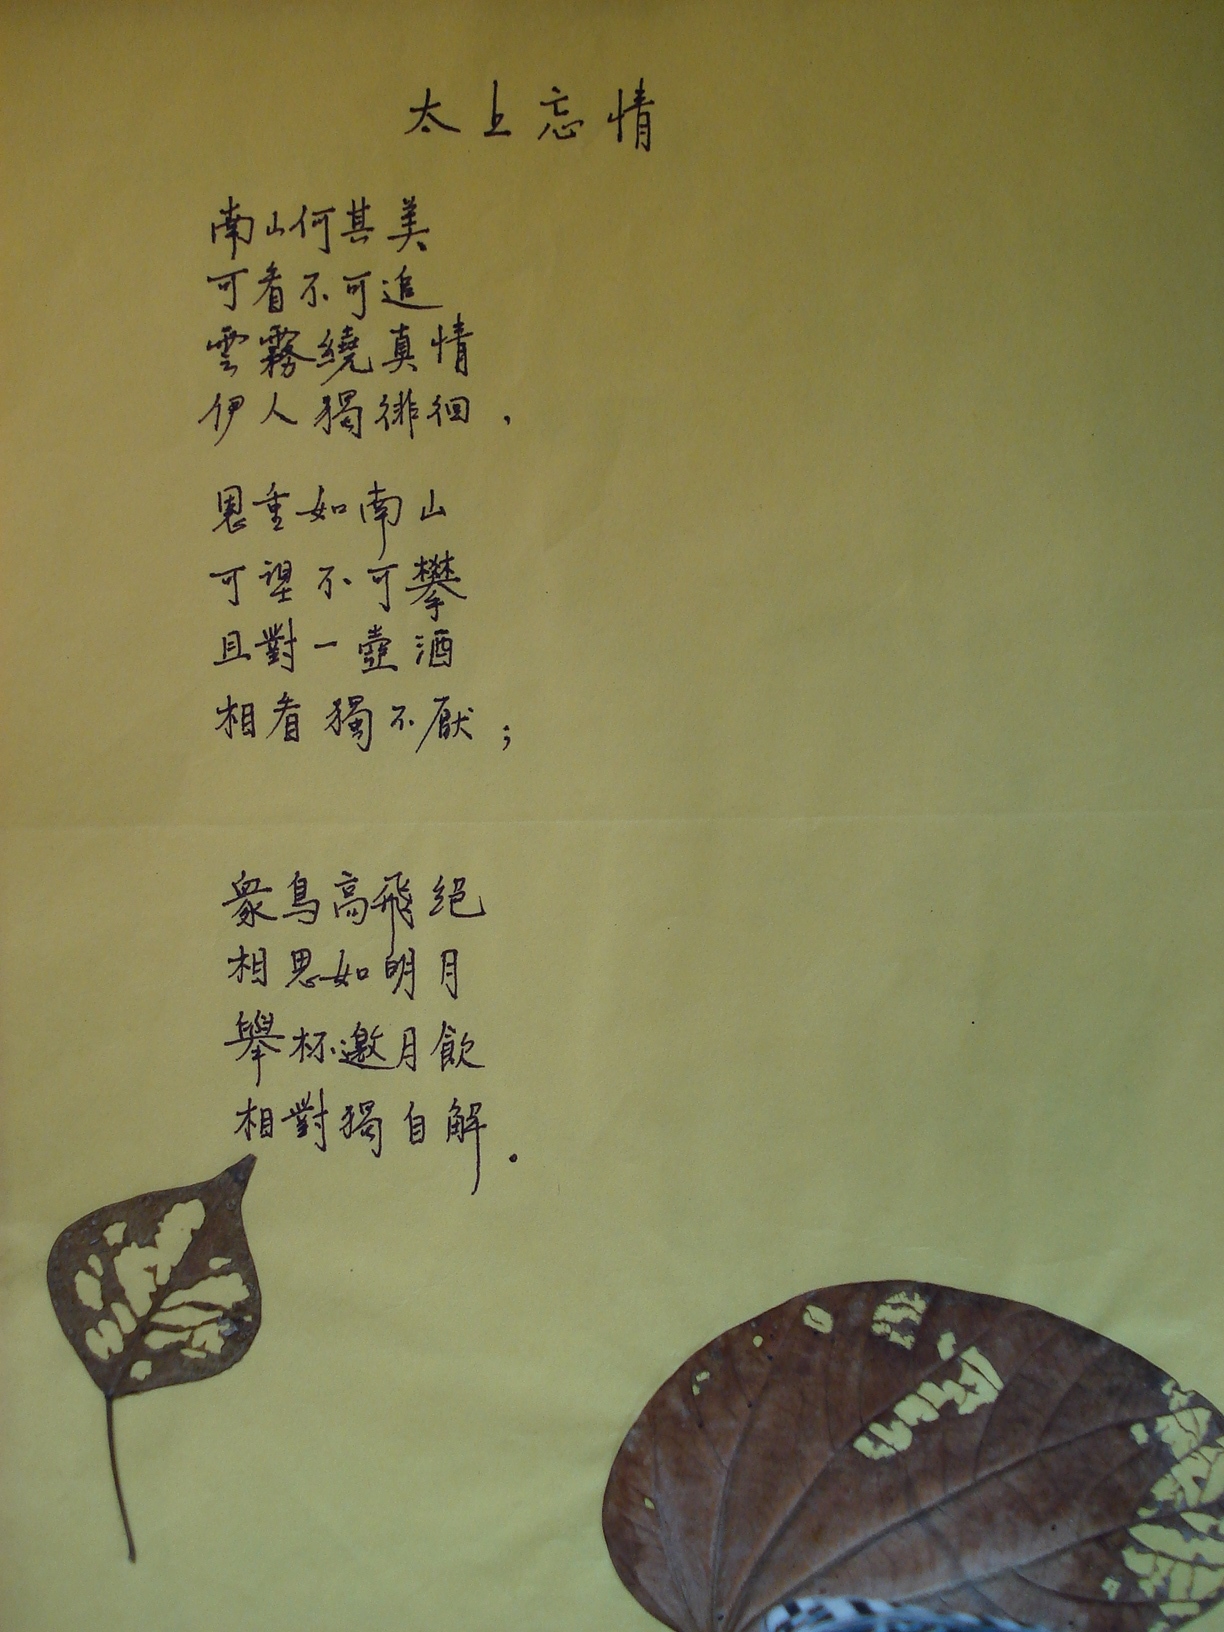 太上忘情
南山何其美
可看不可追
雲霧繞真情
伊人獨徘徊，
恩重如南山
可望不可攀
且對一壺酒
相看獨不厭；
眾鳥高飛絕
相思如明月
舉杯邀月飲
相對獨自解．